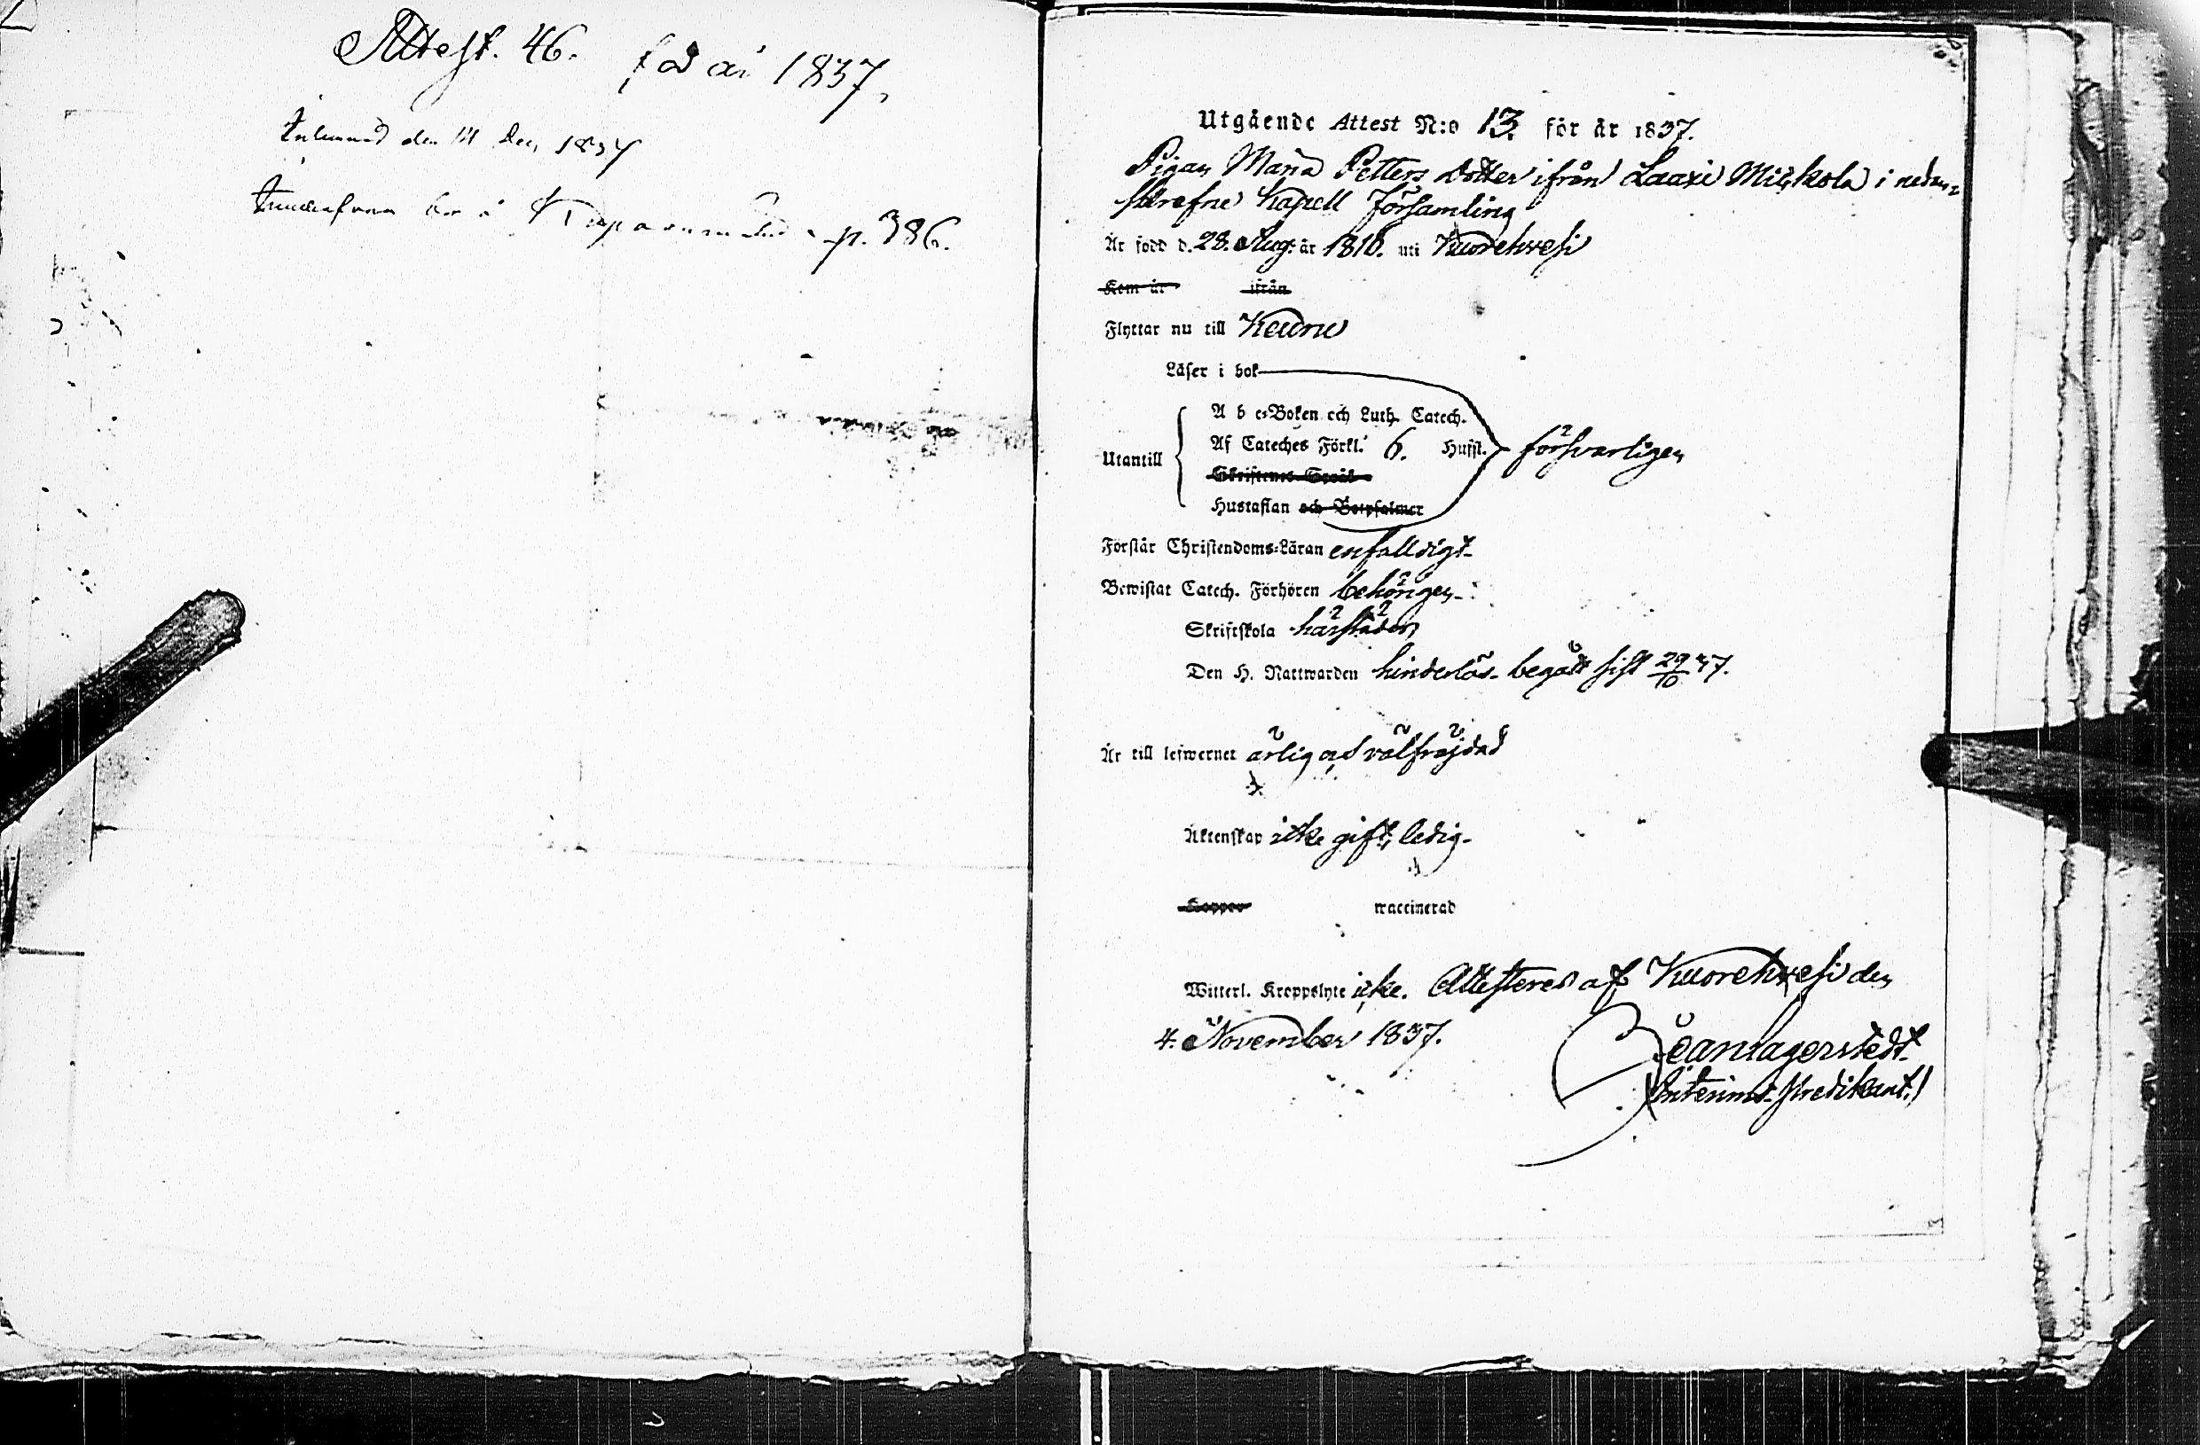 Attest. 46. för år 1837.
Inlemnad den 14 Dec 1837
p. 386.
Utgående Attest N:o 13. för år 1837.
Pigan Maria Petters Dotter ifrån Laaxi Miskola i nedan-
skrefne Kapell Församling
Är född d. 28. Aug: år 1816. uti Kuorehwesi
Kom år ifrån
Flyttar nu till Keuru
Läser i bok
A b c-Boken och Luth. Catech.
Af Cateches Förkl. 6. Hufst. försvarligen
Utantill
Skriftenes Språk
Hustaflan och Botpsalmer
Förstår Christendoms-Läran enfalldigt
Bewistat Catech. Förhören behörigen
Skriftskola härstädes
Den H. Nattwarden hinderlös. begått sist 29/10 37.
Är till lefwernet ärlig och välfräjdad
Äktenskap icke gift, ledig.
Koppor waccinerad
Witterl. Kroppslyte icke. Attesteras af Kuorehwesi den
4. November 1837.
Lagerstedt.
(Interims-Predikant.)